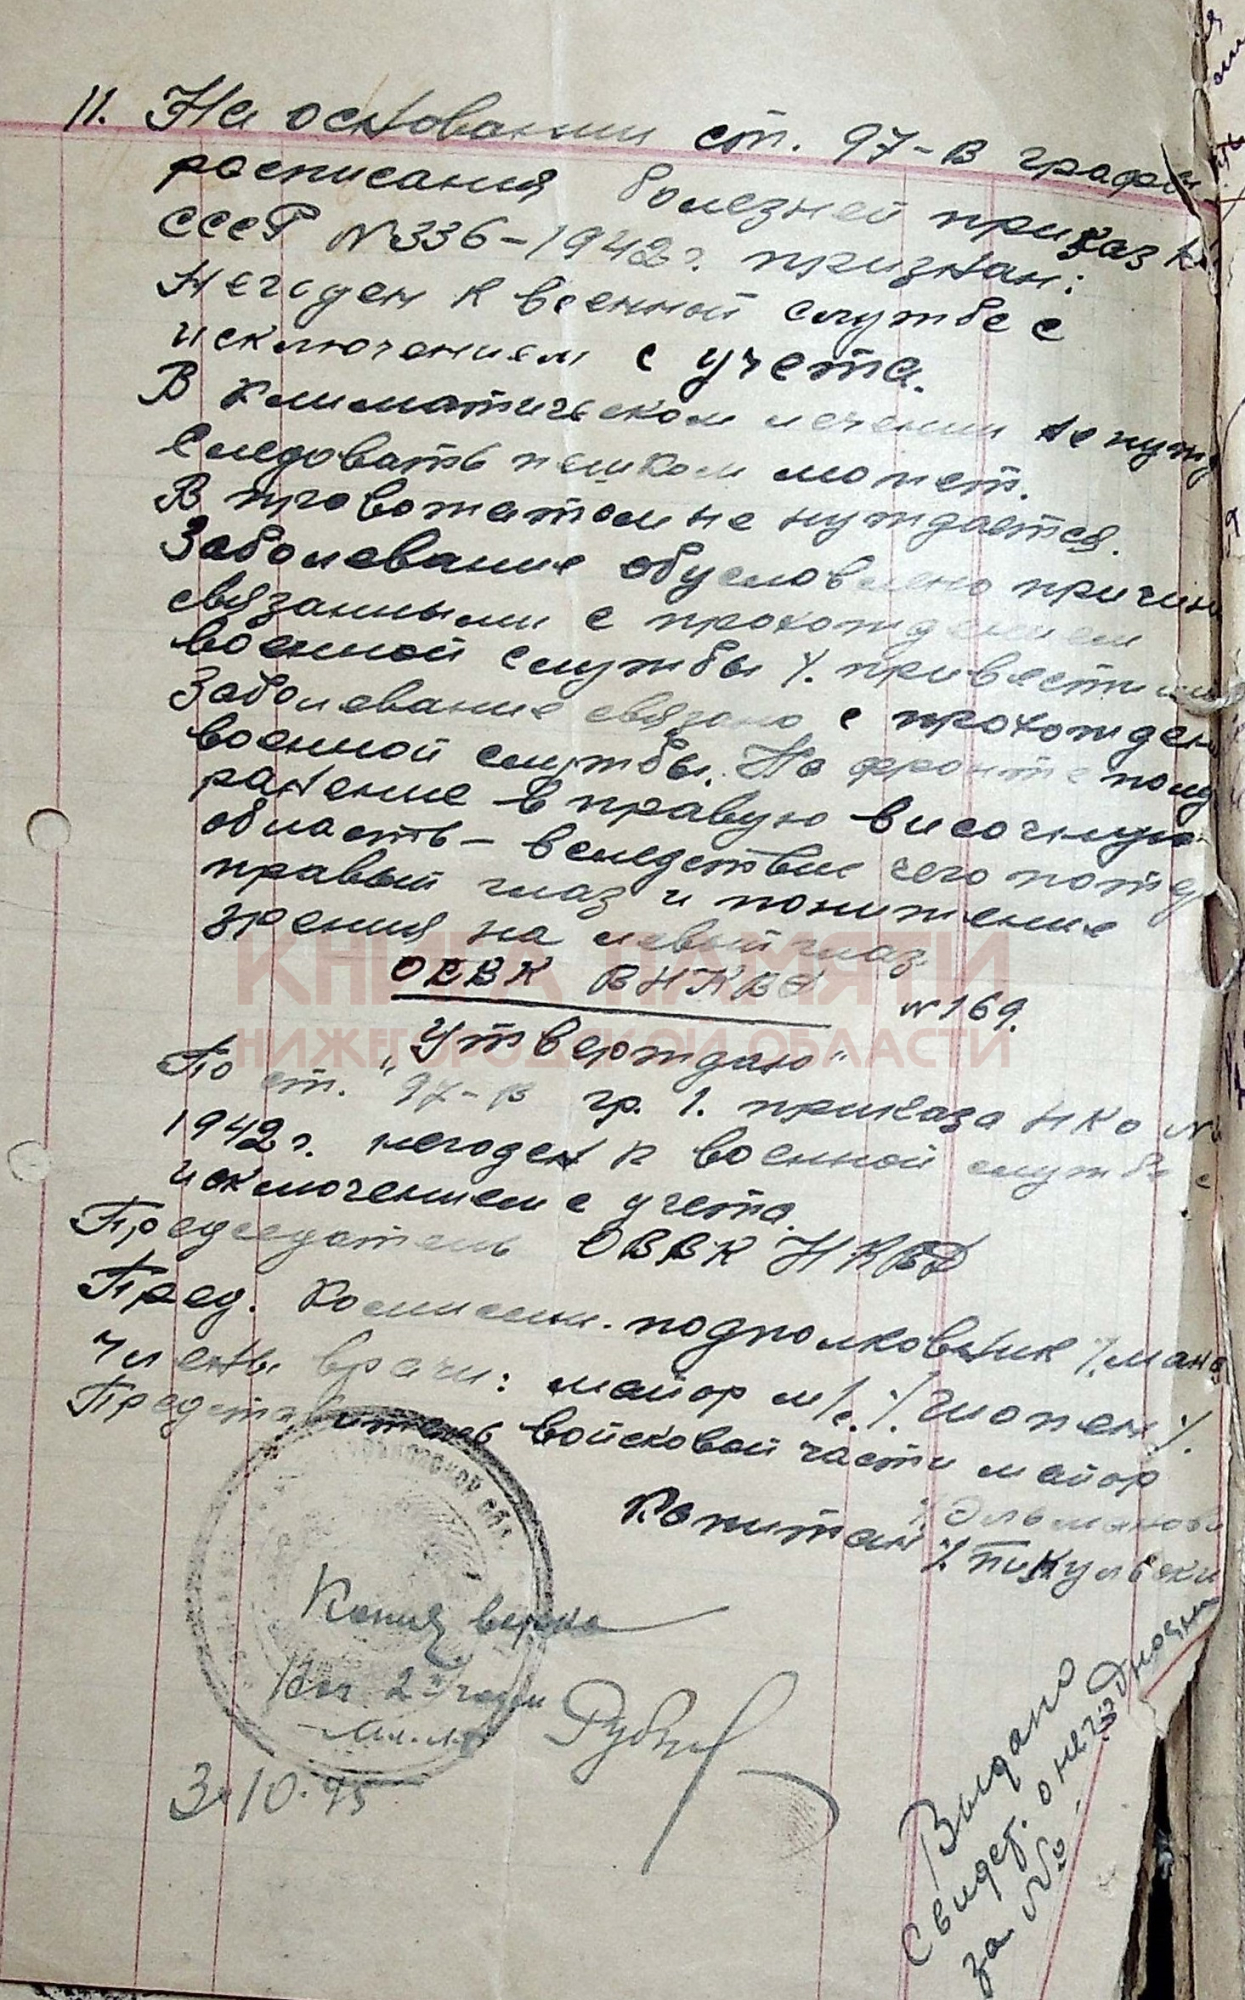 11. На основании ст. 97-в графы
расписания болезней приказ
СССР №336-1942г. признан:
Негоден к военной службе с
исключением с учета.
В климатическом лечении не нужд
Следовать пешком может.
В провожатом не нуждается.
Заболевание обусловлено причин
связанными с прохождением
военной службы
Заболевание связано с прохожден
военной службы. На фронте полу
ранение в правую височную
область - вследствие чего потер
правый глаз и понижение
зрения на левый глаз.
КНИГА ПАМЯТИ
НИЖЕГОРОДСКОЙ ОБЛАСТИ
ОВВК ВНКВД №169.
"Утверждаю"
По ст. 97-в гр. 1. приказа НКО №
1942г. негоден к военной службе с
исключением с учета.
Председатель ОВВК НКВД
Пред. комиссии. подполковник /.
Члены врачи: майор м/с. /Шопен/.
Представитель войсковой части майор
Капитан /Пикульски
Копия верна
2й части
3.10.45
Выдано
свидет. о негодно
за №